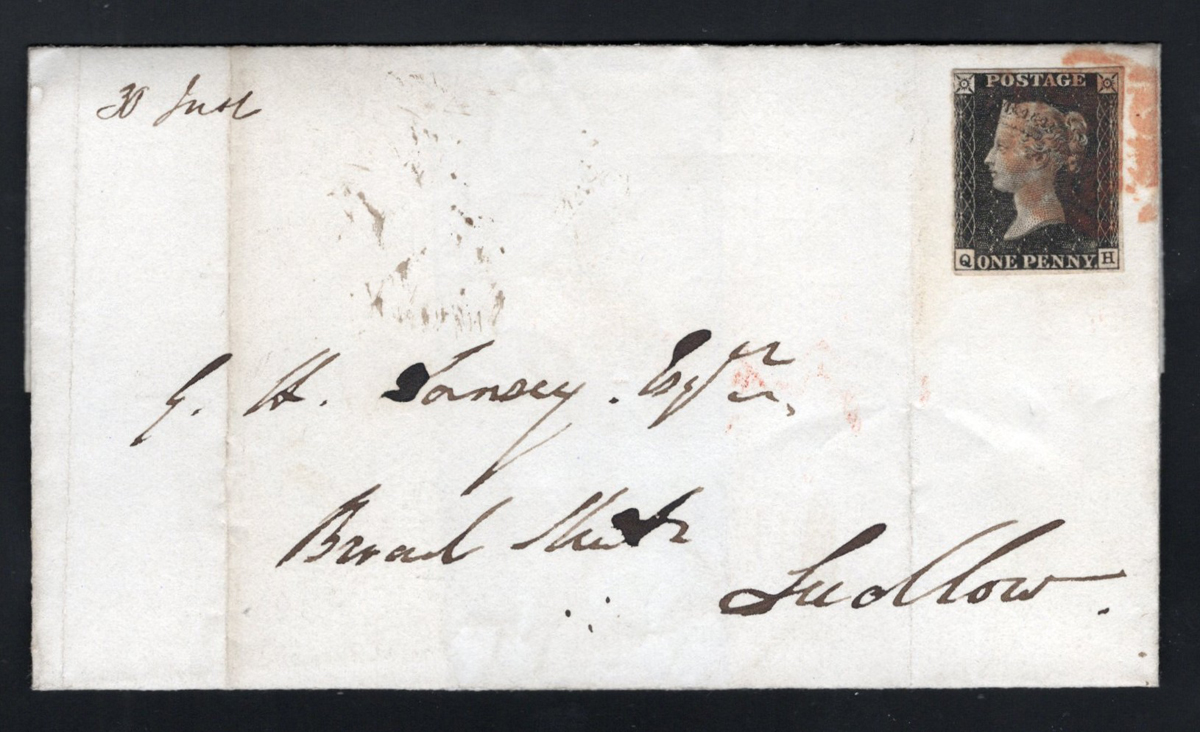 30 Inst
POSTAGE
Q ONE PENNY. H
G. H. Esqr.
Broad Street
Ludlow.